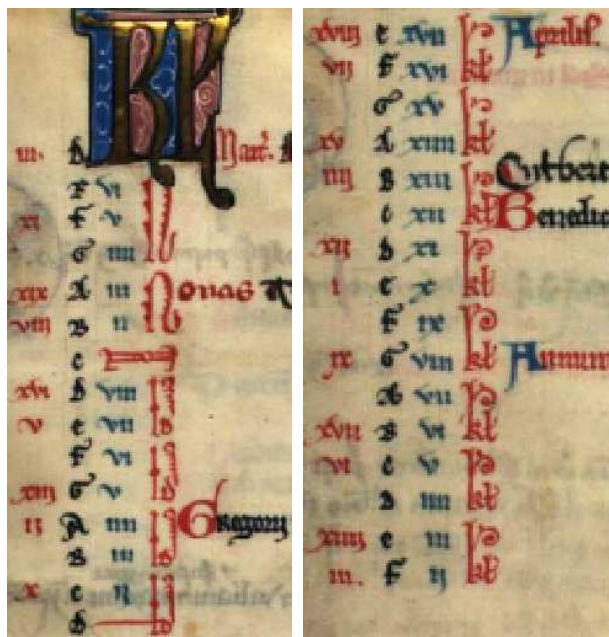 KL
iii. d Mar.
e vi N
xi f v
G iiii
xix A iii Nonas
viii B ii
c
xvi d viii Id
v e vii
f vi Id
xiii G v
ii A iiii Id Gregorij
B iii
x c ij Id
d Id
xviij e xvii kł Aprilis.
vij f xvi kł
G xv kł
xv A xiiii kł
iiij B xiii kł Cutberti
c xii kł Benedic
xij d xi kł
i e x kł
f ix kł
ix G viii kł Annun
A vii kł
xvij B vi kł
vi c v kł
d iiii kł
xiiij e iii kł
iii. f ij kł